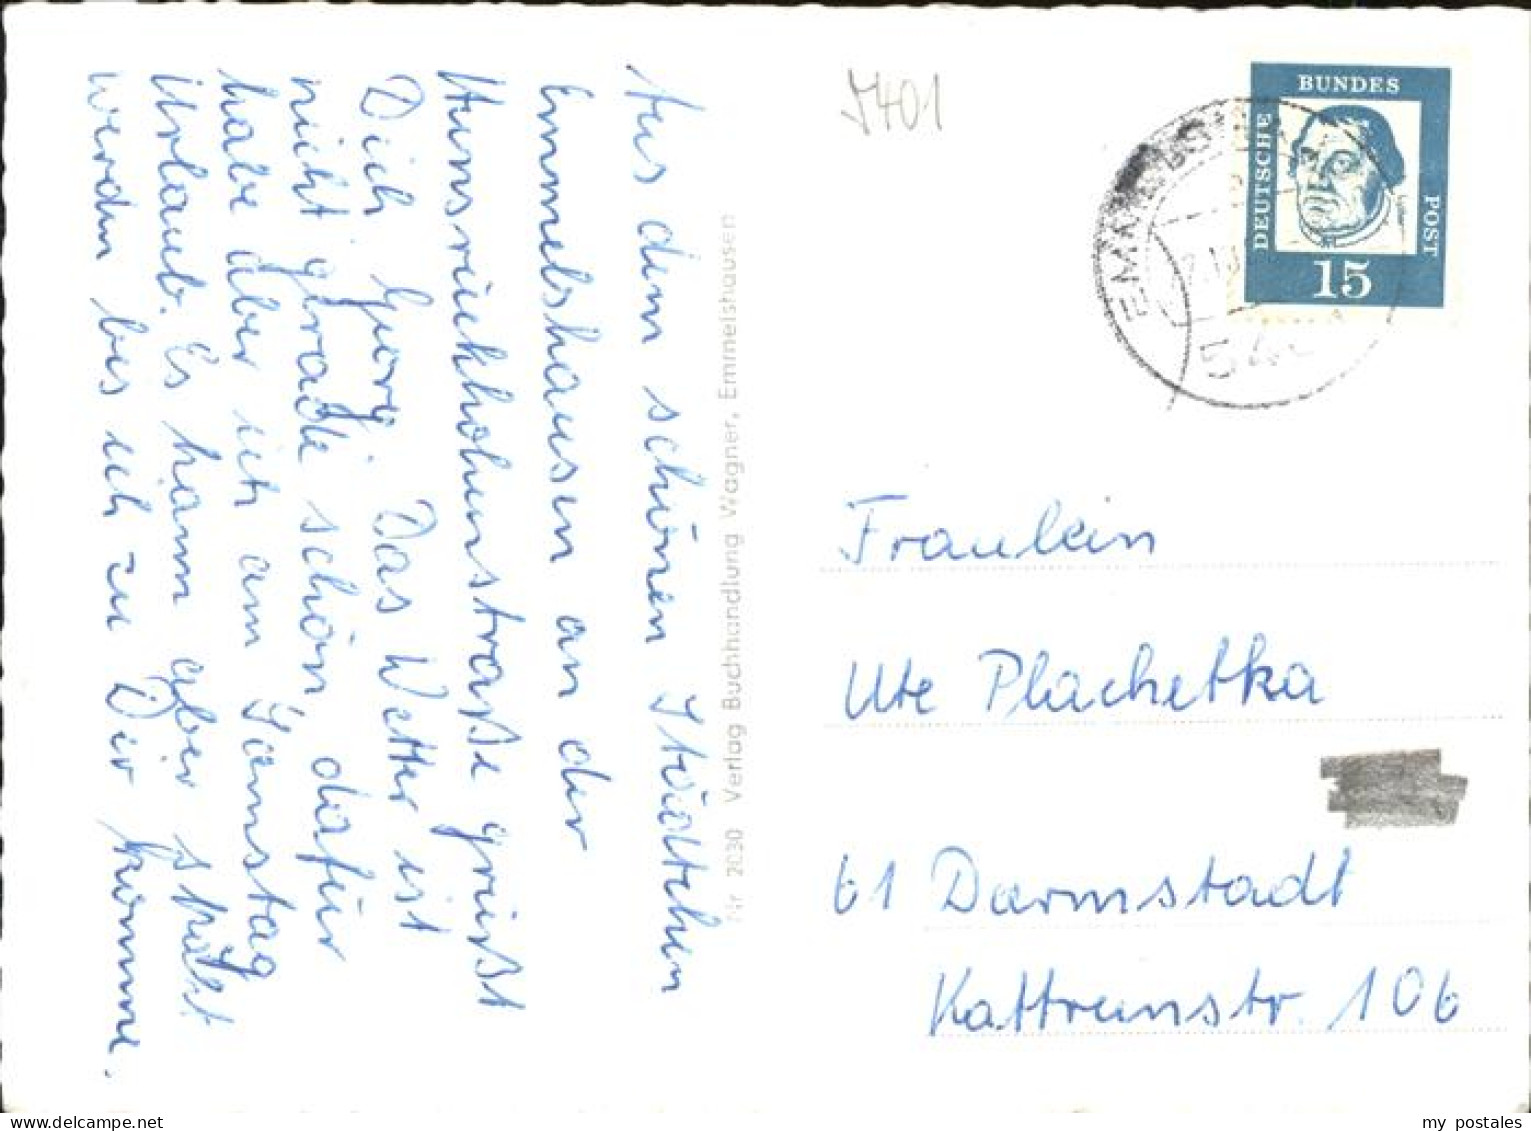 Aus dem schönen Städtchen
Emmelshausen an der
Hunsrückhöhenstraße grüßt
Dich Georg. Das Wetter ist
nicht gerade schön, dafür
habe aber ich am Samstag
Urlaub. Es kann aber spät
werden bis ich zu Dir komme.
Nr. 2030 Verlag Buchhandlung Wagner, Emmelshausen
5401
BUNDES
DEUTSCHE
POST
15
EMMELSH
54
Fräulein
Ute Plachetka
61 Darmstadt
Kattreinstr. 106
my postales